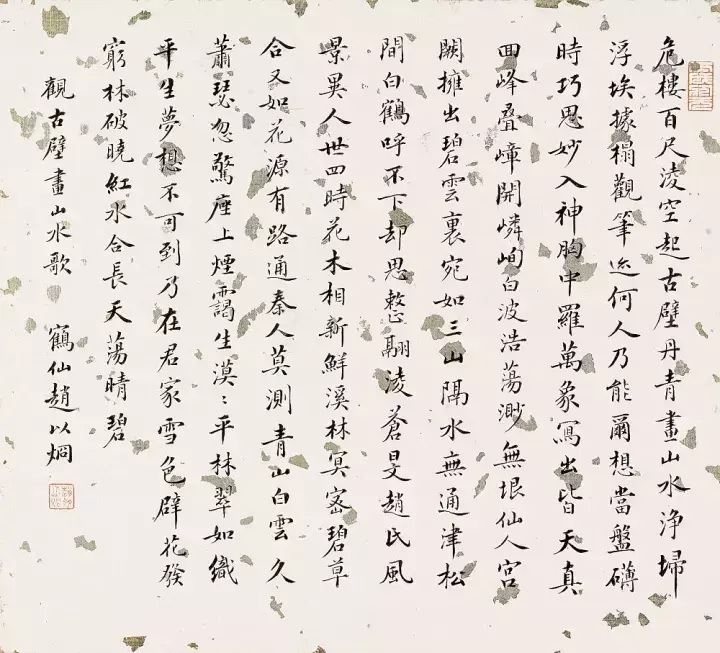 危樓百尺淩空起古壁丹青畫山水浄埽
浮埃據榻觀筆迹何人乃能爾想當盤礴
時巧思妙入神胸中羅萬象寫出皆天真
回峰疊嶂開嶙峋白波浩蕩渺無垠仙人宮
闕擁出碧雲裏宛如三山隔水無通津松
間白鶴呼不下却思整翮淩蒼旻趙氏風
景異人世四時花木相新鮮溪林冥密碧草
合又如花源有路通秦人莫測青山白雲久
蕭瑟忽驚座上煙靄生漠〻平林翠如織
平生夢想不可到乃在君家雪色壁花發
窮林破曉紅水合長天蕩晴碧
觀古壁畫山水歌 鶴仙趙以炯